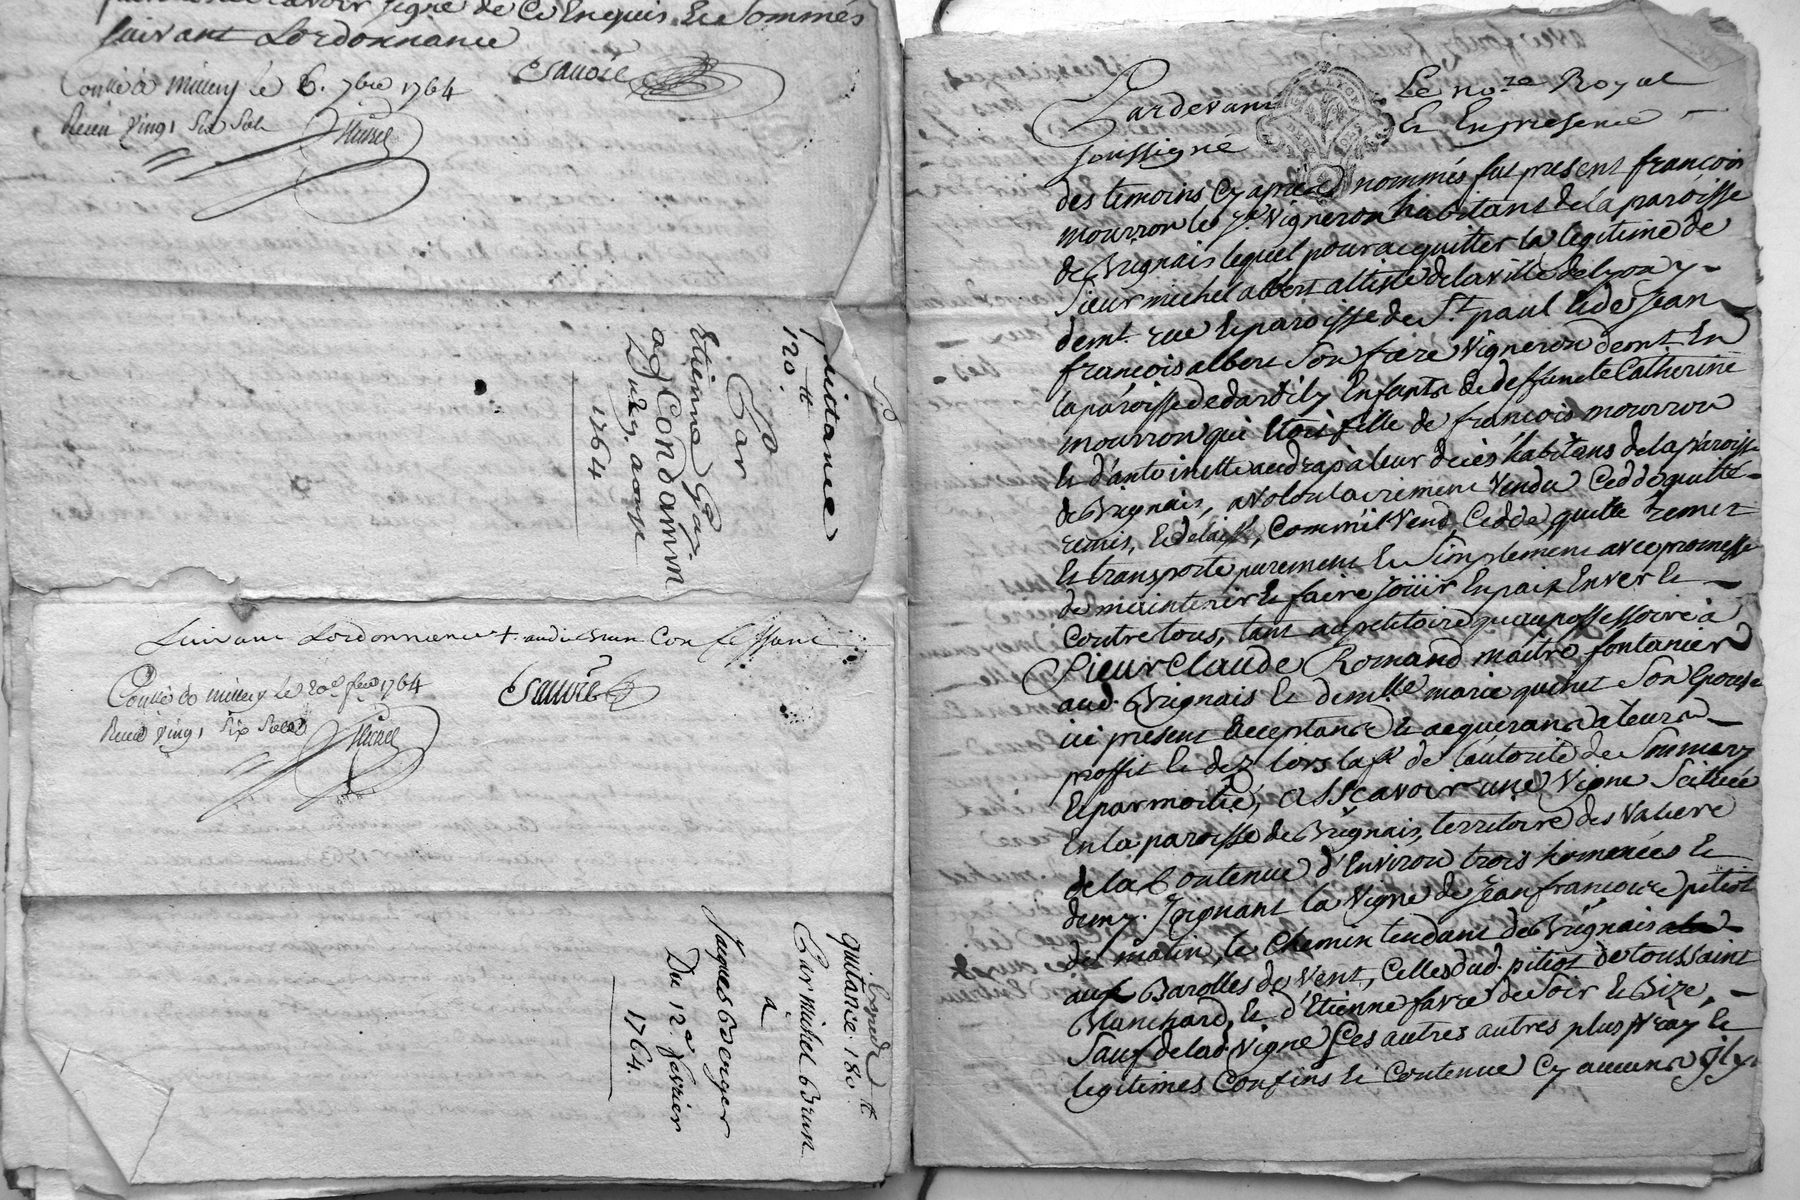 scavoir signé de ce Enquis Et Sommés
suivant Lordonnance
Esauvie
Conllé à millery le 6. 7bre 1764
Receu vingt Six Sols
quittance
120 ⁠tt
Par
Etienne Gay
a Condamin
Du 27. aoust
1764
Suivant Lordonnance +
Conllé à millery le 20e feu 1764
Receu vingt Six Sols
quitance 180 tt
Par michel Brun
a
Jaques Berger
Du 12e fevrier
1764.
Pardevant Le nore Royal
soussigné Et En presence
des temoins cy apres nommés fut present françois
mourron le Je. Vigneron habitant de la paroisse
de Brignais lequel pour acquitter la legitime de
Sieur michel albert altiste de la ville de lyon y
demt. rue Et paroisse de St. paul Et de Jean
françois albert Son frere Vigneron demt. En
la paroisse de dardily Enfants de deffuncte Catherine
mourron qui Etoit fille de françois mourron
Et d'antoinette audrap à leur deces habitans de la paroisse
de Brignais, a volontairement Vendu Ceddé quitté
remis, Et delaissé, Comm'il Vend, Cedde quitte remet
Et transporte purement Et Simplement avec promesse
de maintenir Et faire Joüir En paix Enver Et
Contre tous, tant au petitoire qu'au possessoire à
Sieur Claude Romand maitre fontanier
aud. Brignais Et demlle marie quinet Son Epouse
ici present acceptant Et acquerant a leur
proffit Et dez lors lad. de l'autorité de Son mary
Et par moitié, assçavoir une Vigne Scituée
En la paroisse de Brignais, territoire des Valiere
de la Contenue d'Environ trois homenées Et
demy. Joignant la Vigne de Jean françois pitiot
de matin, le Chemin tendant de Brignais
aux Barolles de Vent, Celles dud. pitiot de toussaint
Blanchard, Et d'Etienne favre de Soir Et Bize,
Sauf de lad. Vigne Ses autres autres plus vray Et
legitimes Confins Et Contenue Cy aucuns Il y